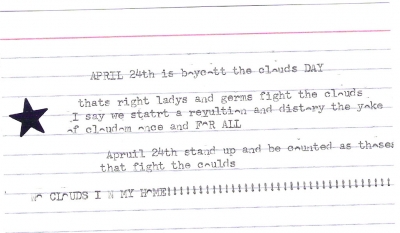 APRIL 24th is boycott the clouds DAY
thats right ladys and germs fight the clouds
I say we statrt a revultion and distory the yoke
of cloudom once and FoR ALL
Apruil 24th stand up and be counted as those
that fight the coulds
No CLoUDS I N MY HoME!!!!!!!!!!!!!!!!!!!!!!!!!!!!!!!!!!!